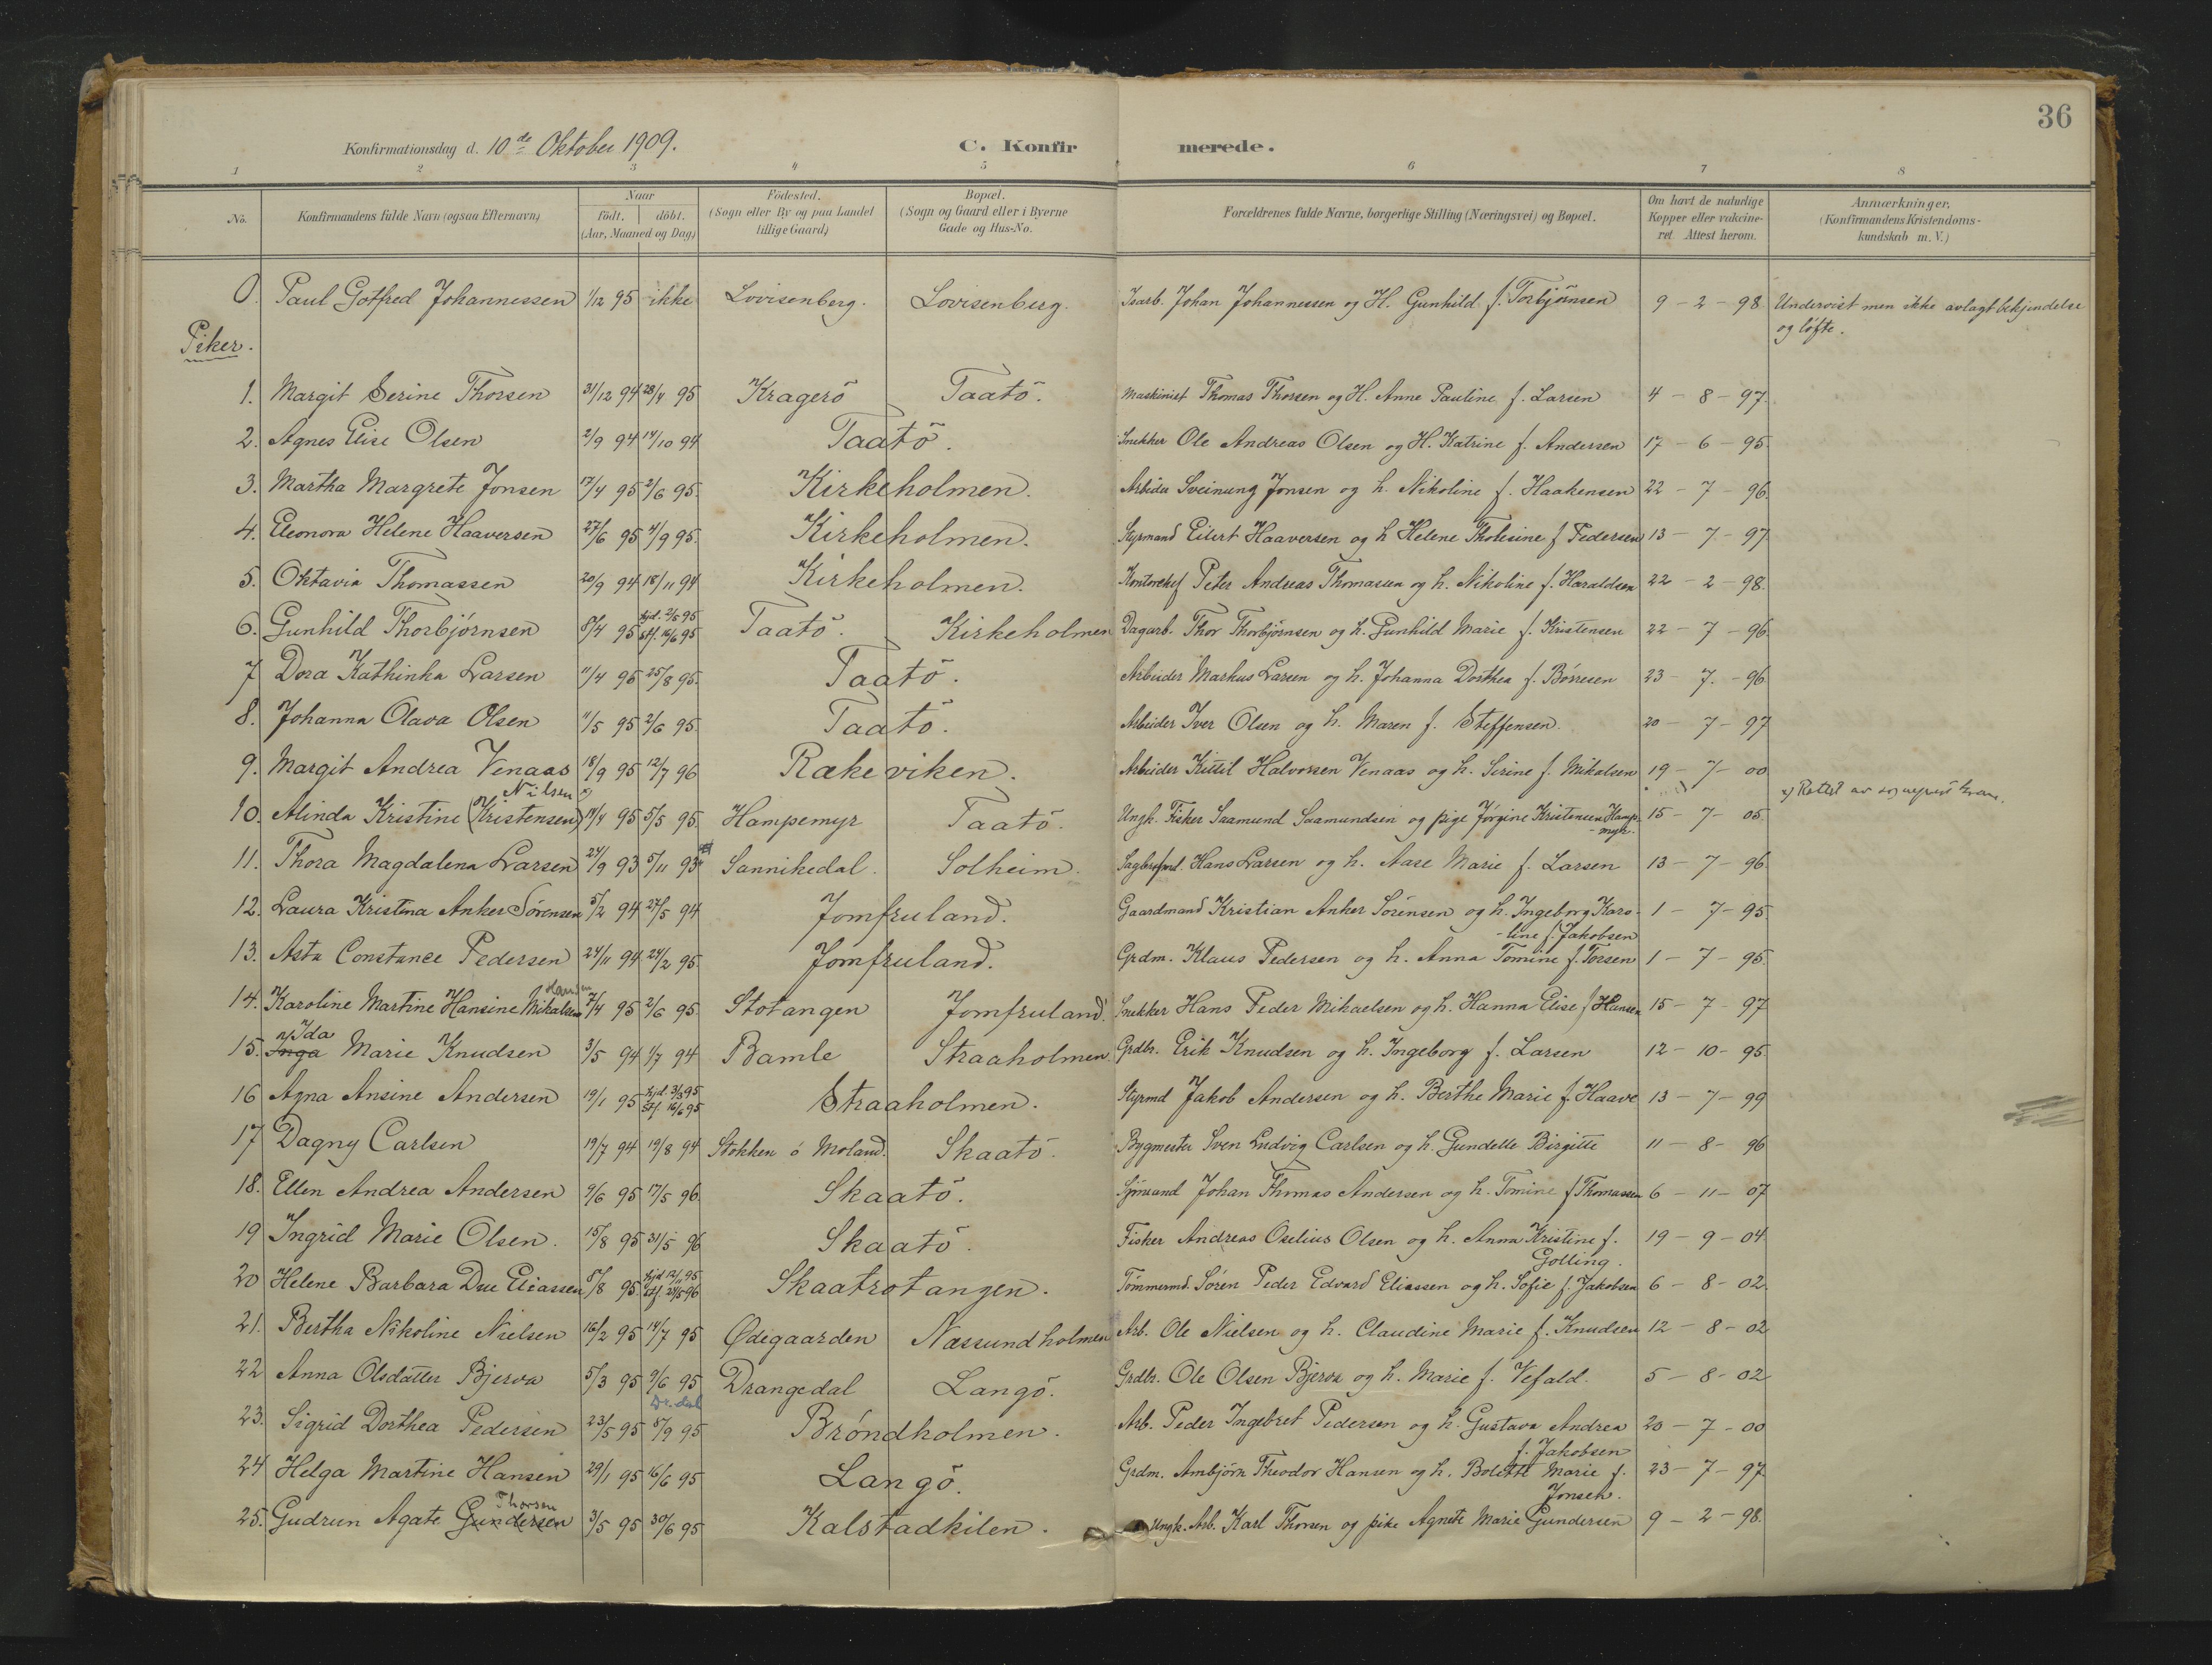 36
Konfirmationsdag d. 10de Oktober 1909. C. Konfirmerede.
1 2 3 4 5 6 7 8
No. Konfirmandens fulde Navn (ogsaa Efternavn) Naar født. døbt. (Aar, Maaned og Dag) Födested. (Sogn eller By og paa Landet tillige Gaard) Bopæl. (Sogn og Gaard eller i Byerne Gade og Hus-No. Forældrenes fulde Navne, borgerlige Stilling (Næringsvei) og Bopæl. Om havt de naturlige Kopper eller vakcineret Attest herom. Anmærkninger, (Konfirmandens Kristendomskundskab m. V.)
0. Paul Gotfred Johannessen 1/12 95 ikke Lovisenberg. Lovisenberg. Isarb. Johan Johannessen og H. Gunhild f. Torbjörnsen 9 - 2 - 98 Undervist men ikke avlagt bekjendelse
og løfte.
Piker.
1. Margit Serine Thorsen 31/12 94 28/4 95 Kragerö Taatö. Maskinist Thomas Thorsen og H. Anne Pauline f. Larsen 4 - 8 - 97.
2. Agnes Elise Olsen 2/9 94 14/10 94 Taatö. Snekker Ole Andreas Olsen og H. Katrine f. Andersen 17 - 6 - 95
3. Martha Margrete Jonsen 17/4 95 2/6 95. Kirkeholmen. Arbeider Sveinung Jonsen og h. Nikoline f. Haakensen 22 - 7 - 96
4. Eleonora Helene Haaversen 27/6 95 4/9 95. Kirkeholmen. Styrmand Eilert Haaversen og h Helene Tholesine f Pedersen 13 - 7 - 97
5. Oktavia Thomassen 20/9 94 18/11 94 Kirkeholmen. Kontorchef Peter Andreas Thomassen og h. Nikoline f. Haraldsen 22 - 2 - 98.
6. Gunhild Thorbjörnsen 8/4 95 hjd. 2/5 95 stf. 16/6 95 Taatö. Kirkeholmen Dagarb. Thor Thorbjörnsen og h. Gunhild Marie f. Kristensen 22 - 7 - 96
7 Dora Kathinka Larsen 11/4 95 25/8 95. Taatö. Arbeider Markus Larsen og h. Johanna Dorthea f. Börresen 23 - 7. - 96
8. Johanna Olava Olsen 11/5 95 2/6 95. Taatö. Arbeider Iver Olsen og h. Maren f. Steffensen. 20 - 7 - 97
9. Margit Andrea Venaas 18/9 95 12/7 96 Rækeviken. Arbeider Kittil Halvorsen Venaas og h. Serine f. Mikalsen 19 - 7 - 00
Nilsen x)
10. Alinda Kristine (Kristensen) 14/4 95 5/5 95. Hampemyr Taatö. Ungk. Fisker Saamund Saamundsen og pige Jörgine Kristensen Hampmyr. 15 - 7 - 05. x) Rettet av sogneprest
11. Thora Magdalena Larsen 24/9 93 5/11 93 Sannikedal. Solheim. Hans Larsen og h. Aase Marie f. Larsen 13 - 7 - 96
12. Laura Kristina Anker Sörensen 5/2 94 27/5 94 Jomfruland. Gaardmand Kristian Anker Sörensen og h. Ingeborg Karo- 1 - 7 - 95
-line f. Jakobsen
13. Asta Constance Pedersen 24/11 94 24/2 95 Jomfruland. Grdm. Klaus Pedersen og h. Anna Tomine f. Torsen 1 - 7 - 95.
Hansen
14. Karoline Martine Hansine Mikalsen 7/4 95 2/6 95. Stotangen Jomfruland. Snekker Hans Peder Mikaelsen og h. Hanna Elise f Hansen 15 - 7 - 97
Ida
15. Inga Marie Knudsen 3/5 94 1/7 94 Bamle Straaholmen. Grdbr. Erik Knudsen og h. Ingeborg f. Larsen 12 - 10 - 95.
16 Agna Ansine Andersen 19/1 95 hjd. 3/3 95 Stf. 16/6 95 Straaholmen. Styrmd Jakob Andersen og h. Berthe Marie f. Haave 13 - 7 - 99
17 Dagny Carlsen 19/7 94 19/8 94 Stokken ö Moland. Skaatö. Bygmester Sven Ludvig Carlsen og h. Gundelle Birgitte 11 - 8 - 96
18. Ellen Andrea Andersen 9/6 95 17/5 96. Skaatö. Sjömand Johan Thomas Andersen og h. Tomine f Thomassen 6 - 11 - 07
19 Ingrid Marie Olsen. 15/8 95 31/5 96 Skaatö. Fisker Andreas Oselius Olsen og h. Anna Kristine f. 19 - 9 - 04
Golling.
20 Helene Barbara Due Eliassen 8/8 95. hjd 12/11 95 stf. 24/5 96 Skaatrotangen. Tömmermd. Sören Peder Edvard Eliassen og h. Sofie f. Jakobsen 6 - 8 - 02.
21. Bertha Nikoline Nielsen 16/2 95 14/7 95 Ødegaarden Næssundholmen Arb. Ole Nielsen og h. Claudine Marie f. Knudsen 12 - 8 - 02
22 Anna Olsdatter Bjerva 5/3 95 9/6 95 Drangedal Langö. Grdbr. Ole Olsen Bjerva og h. Marie f. Vefald. 5 - 8 - 02
Dr.dal
23. Sigrid Dorthea Pedersen 23/5 95 8/9 95 Bröndholmen. Arb. Peder Ingebret Pedersen og h. Gustava Andrea 20 - 7 - 00
f. Jakobsen
24 Helga Martine Hansen 29/1 95 16/6 95 Langö. Grdm. Ambjörn Theodor Hansen og h. Bolette Marie f. 23 - 7 - 97
Jonsen.
Thorsen
25. Gudrun Agate Gundersen 3/5 95 30/6 95 Kalstadkilen. Ungk. Arb. Karl Thorsen og pike Agnete Marie Gundersen 9 - 2 - 98.